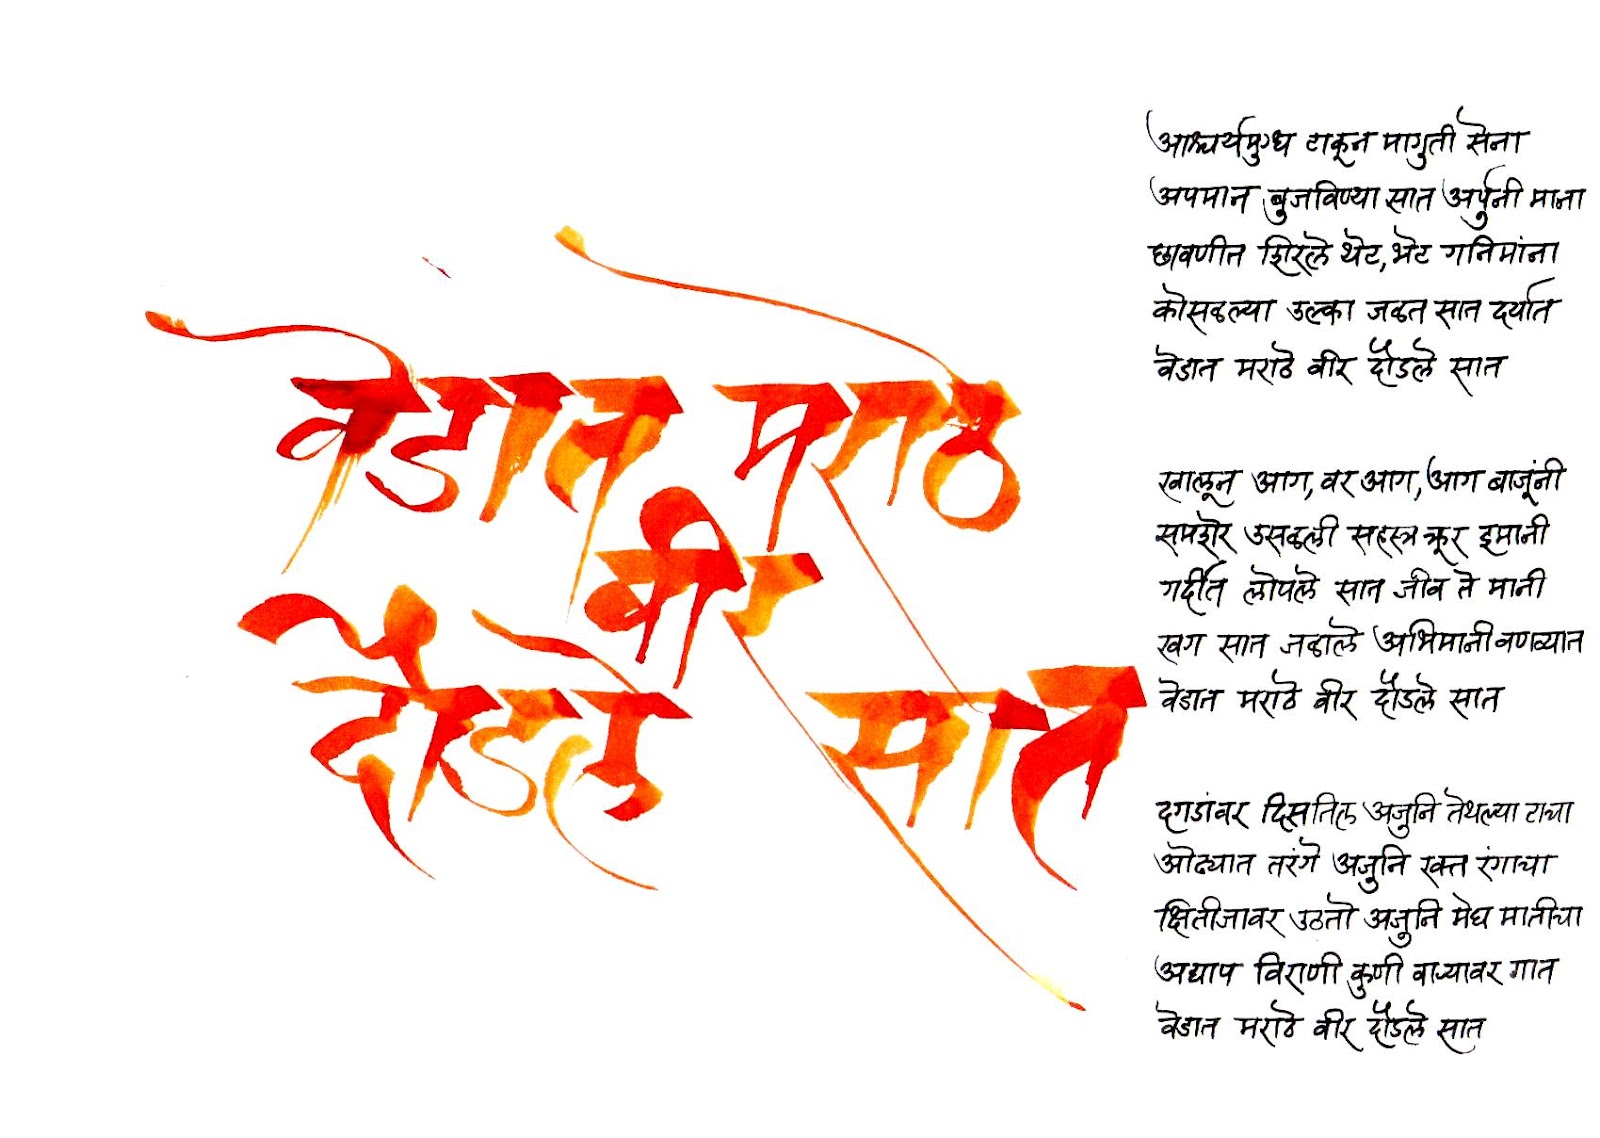 वेडात मराठे
वीर
दौडले सात
आश्चर्यमुग्ध टाकून मागुती सेना
अपमान बुजविण्या सात अर्पुनी माना
छावणीत शिरले थेट, भेट गनिमांना
कोसळल्या उल्का जळत सात दर्यात
वेडात मराठे वीर दौडले सात
खालून आग, वर आग, आग बाजूंनी
समशेर उसळली सहस्त्र क्रूर इमानी
गर्दीत लोपले सात जीव ते मानी
खग सात जळाले अभिमानी वणव्यात
वेडात मराठे वीर दौडले सात
दगडांवर दिसतिल अजुनि तेथल्या टाचा
ओढ्यात तरंगे अजुनि रक्त रंगाचा
क्षितीजावर उठतो अजुनि मेघ मातीचा
अद्याप विराणी कुणी वाऱ्यावर गात
वेडात मराठे वीर दौडले सात